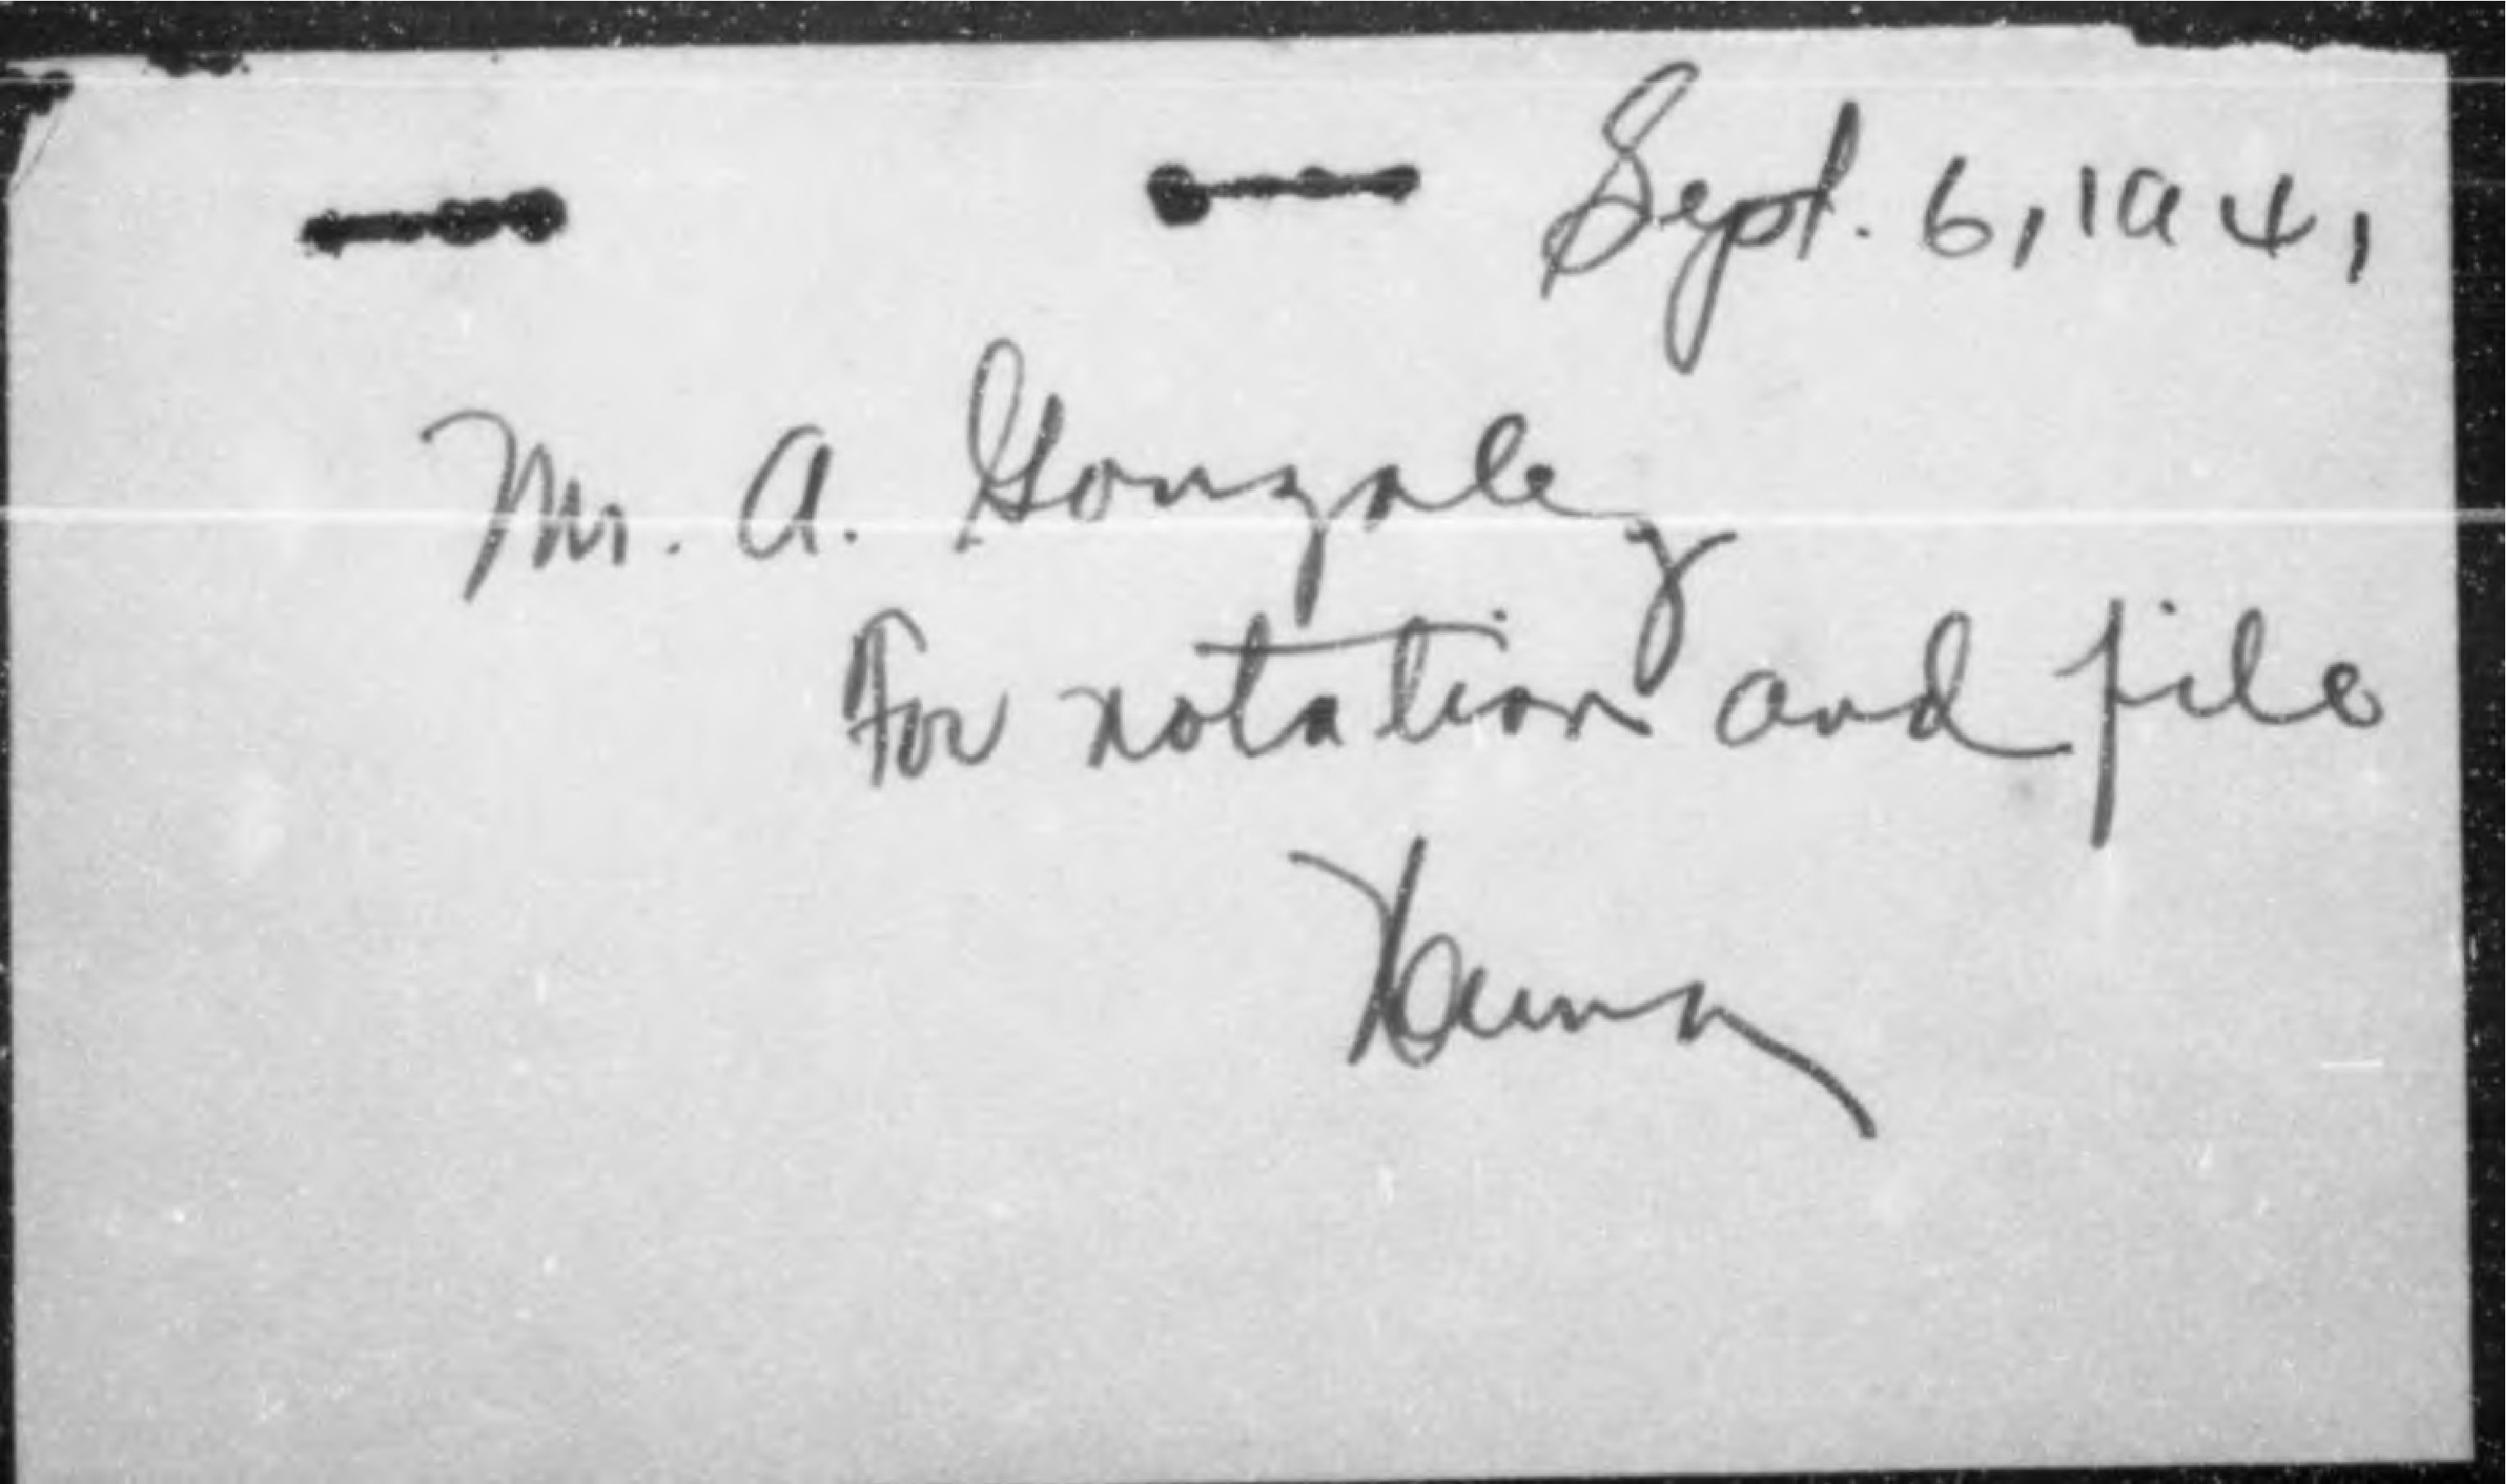 Sept. 6, 1941
Mr. A. Gonzalez
For notation and file